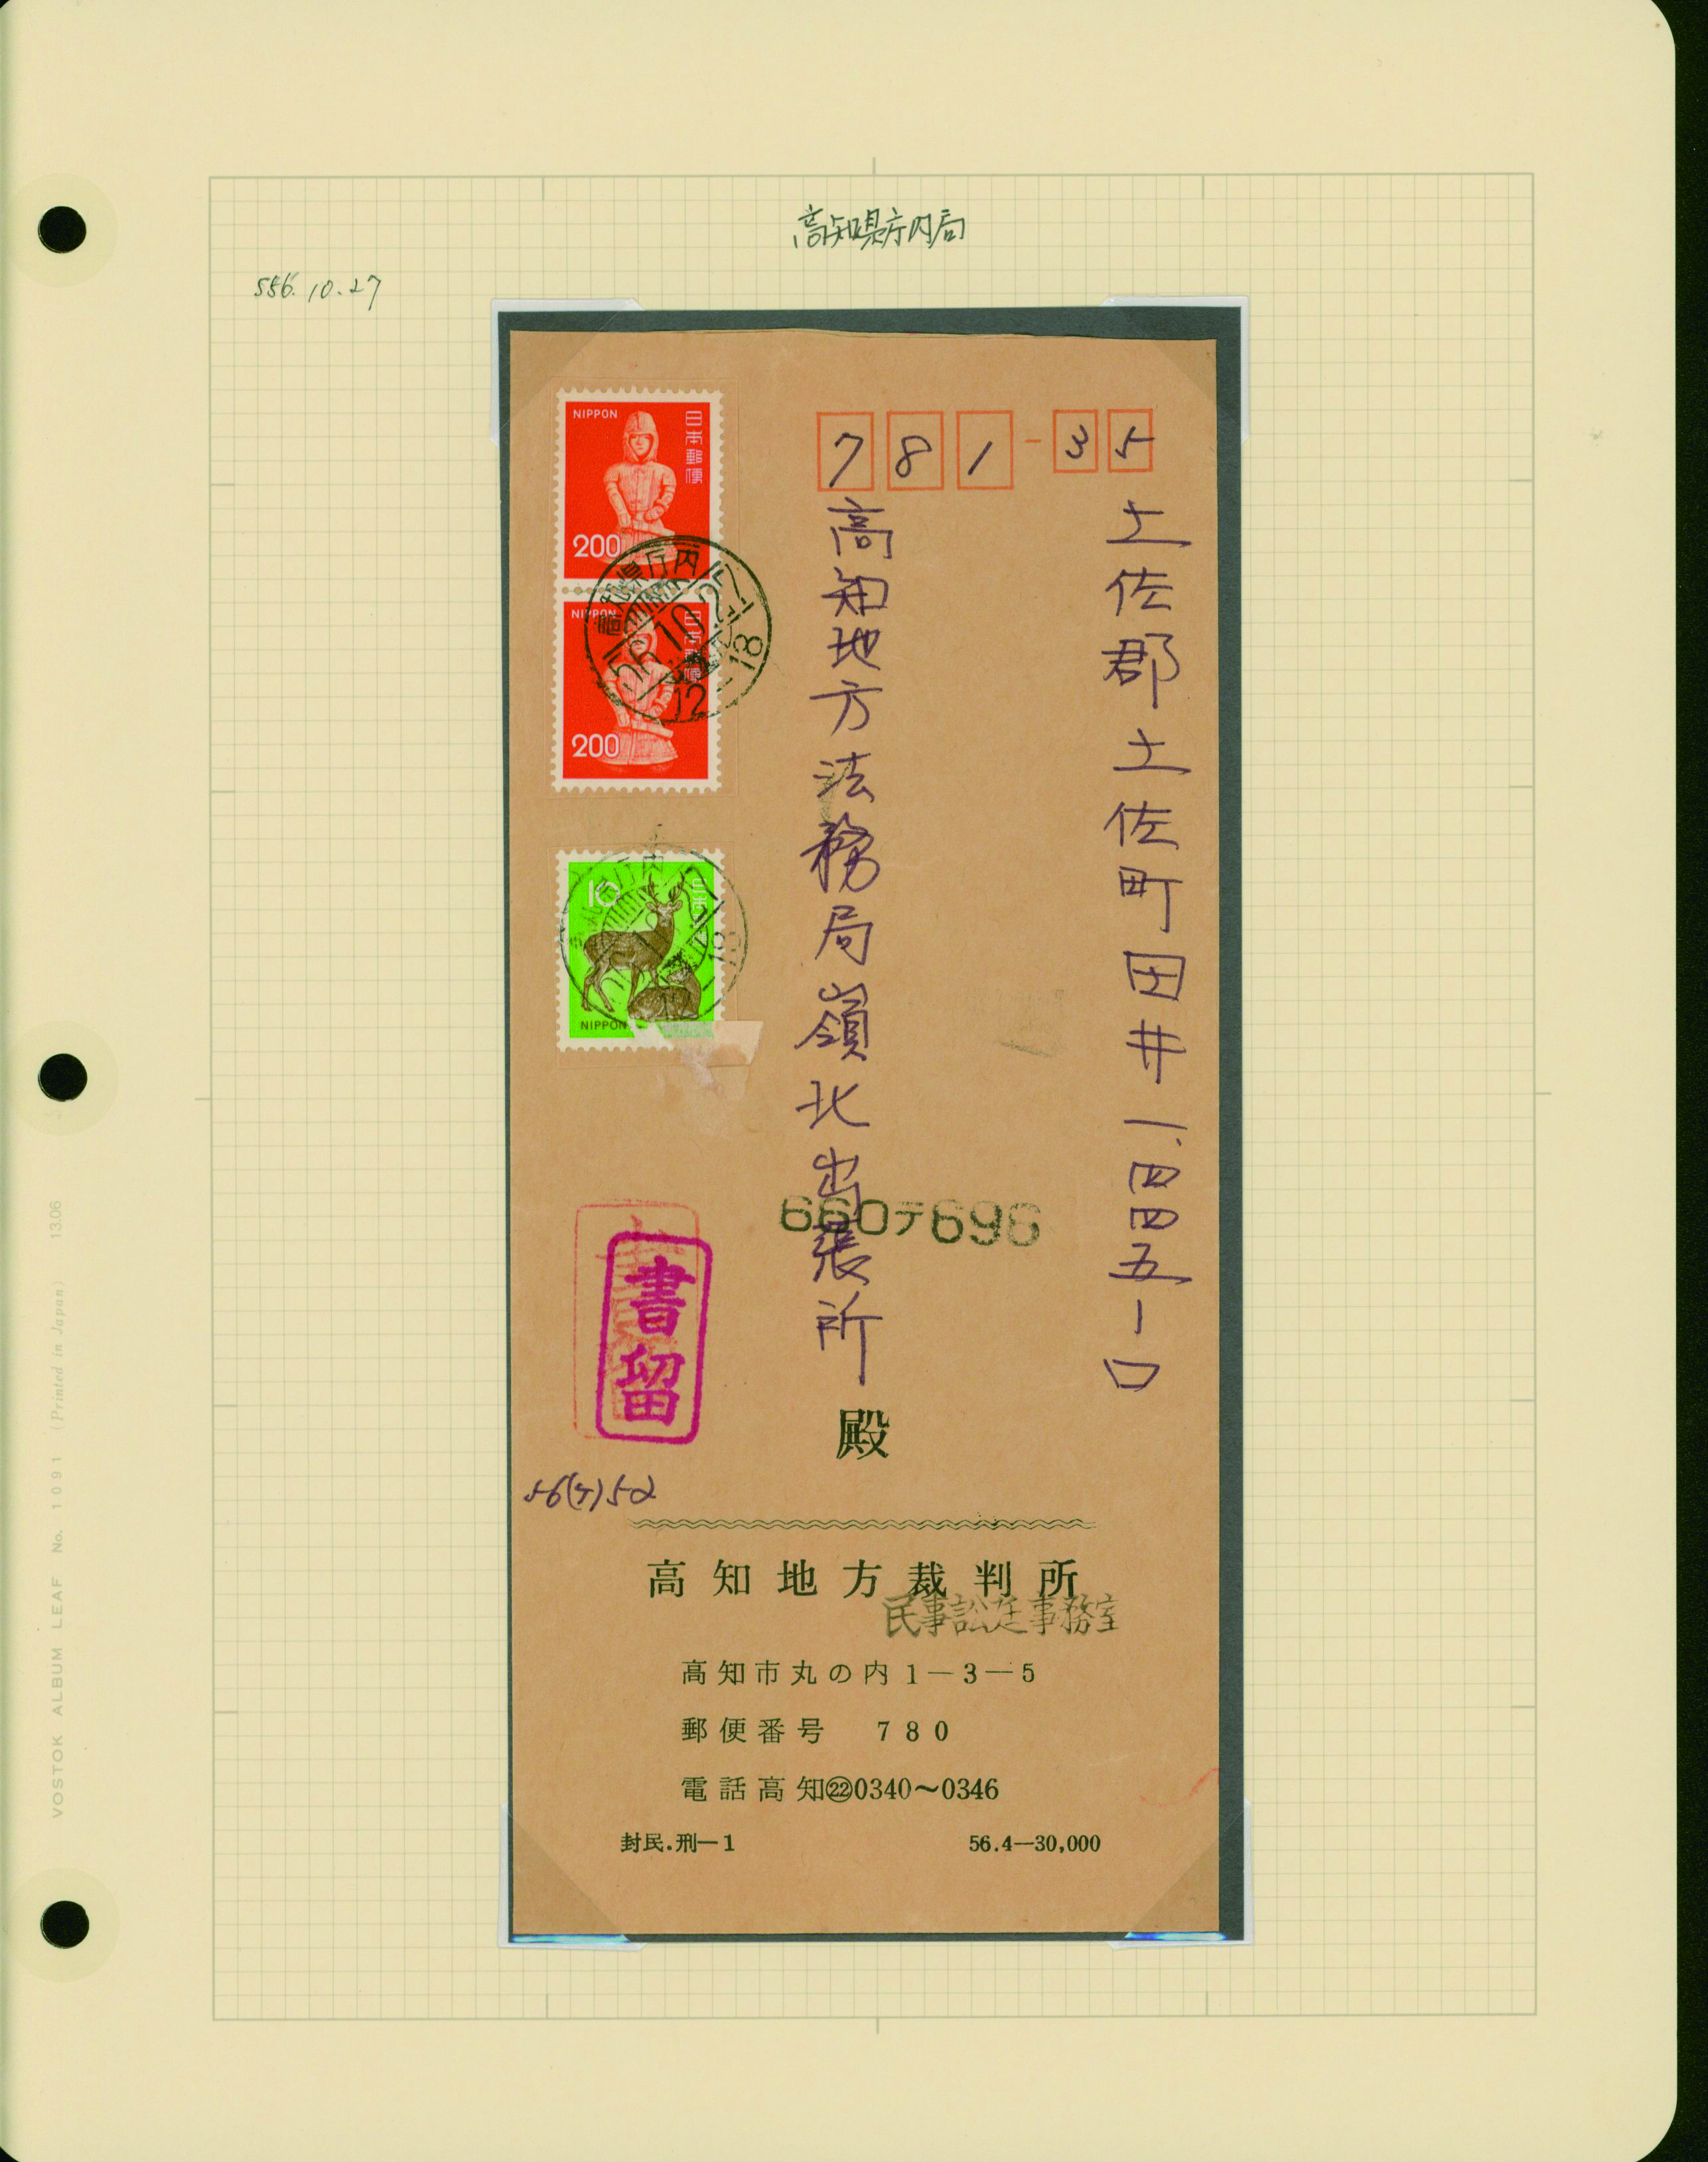 高知県庁内局
S56.10.27
NIPPON
日本郵便
200
NIPPON
日本郵便
200
高知県庁内
56.10.27
12-18
10
NIPPON
781-35
土佐郡土佐町田井一、四四五ー口
高知地方法務局嶺北出張所
殿
660テ696
書留
56(ケ)52
高知地方裁判所
民事訟廷事務室
高知市丸の内1―3―5
郵便番号 780
電話高知㉒0340〜0346
封民.刑―1
56.4―30,000
VOSTOK ALBUM LEAF No. 1091 (Printed in Japan) 13.06